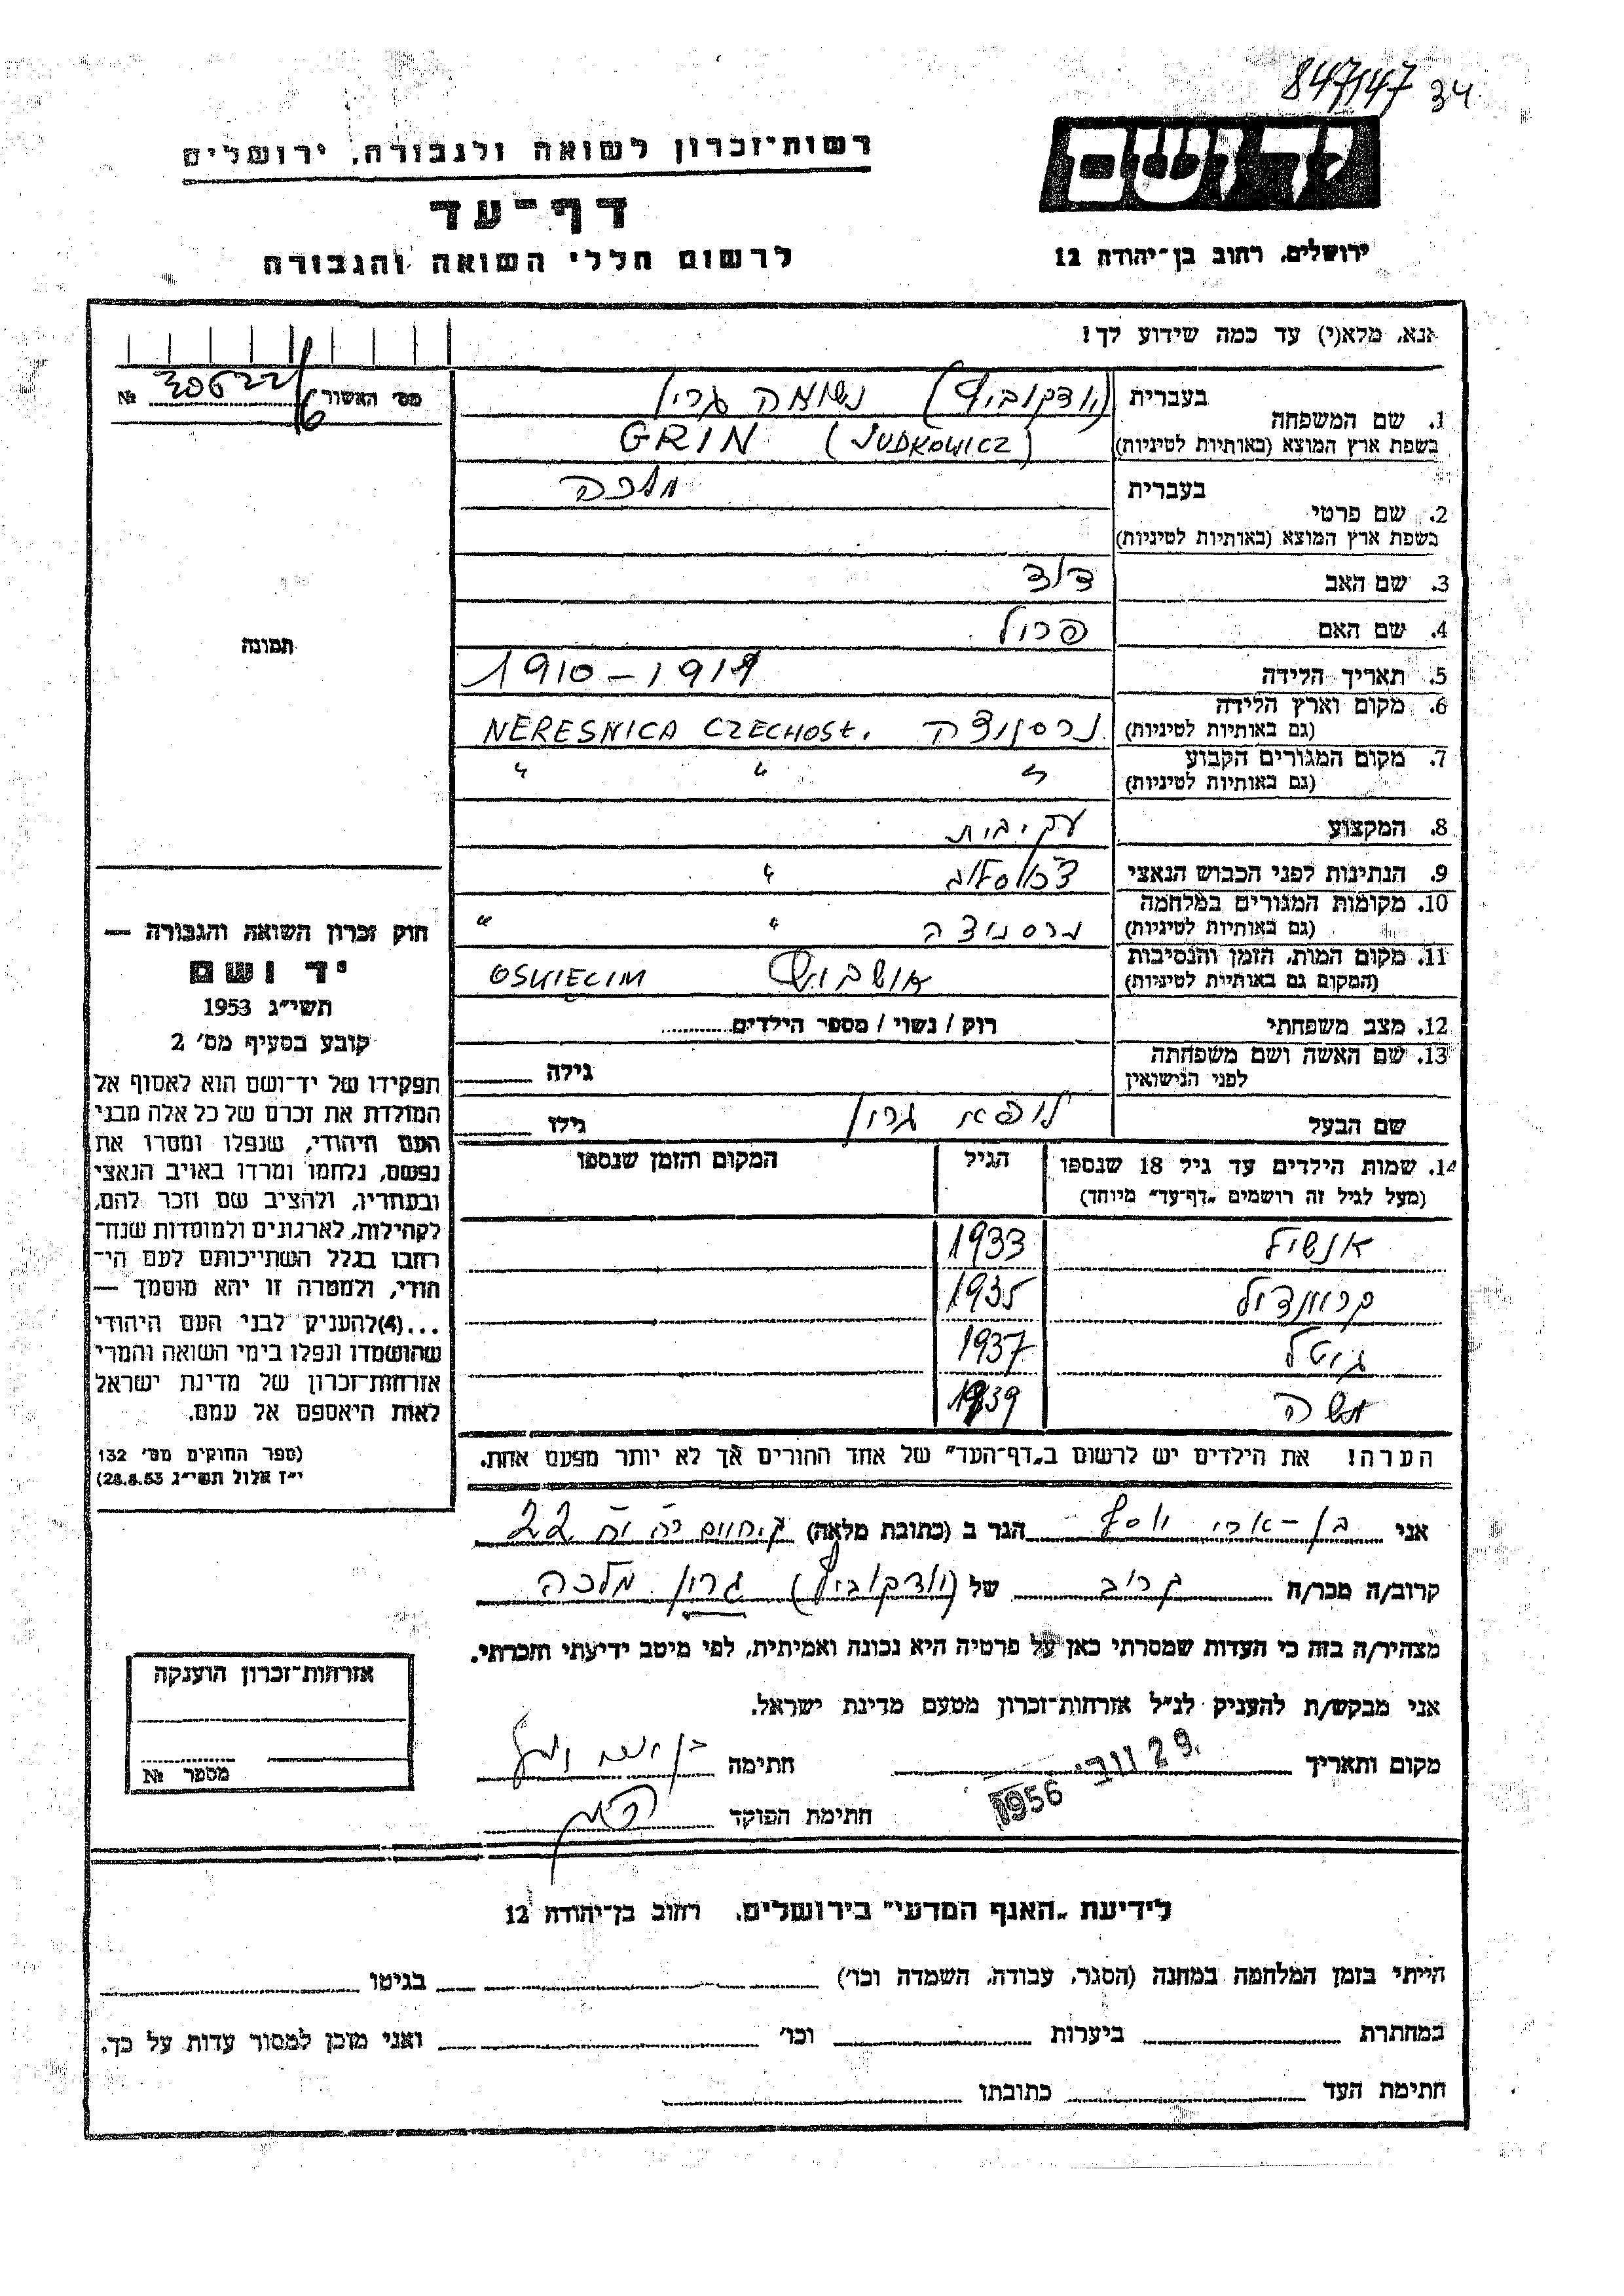 847147 34
יד ושם
ירושלים, רחוב בן-יהודה 12
רשות-זכרון לשואה ולגבורה, ירושלים
דף-עד
לרשום חללי השואה והגבורה
אנא, מלא(י) עד כמה שידוע לך!
מס' האשור 6/30622 №
1. שם המשפחה בעברית (יודקוביץ) נשואה גרין
בשפת ארץ המוצא (באותיות לטיניות) GRIN (JUDKOWICZ)
2. שם פרטי בעברית מלכה
בשפת ארץ המוצא (באותיות לטיניות)
3. שם האב דוד
4. שם האם פרול
5. תאריך הלידה 1910 – 1911
6. מקום וארץ הלידה (גם באותיות לטיניות) נרסניצה NERESNICA CZECHOSŁ.
7. מקום המגורים הקבוע (גם באותיות לטיניות) " " "
8. המקצוע עק. בית
9. הנתינות לפני הכבוש הנאצי צ'כוסלוב "
10. מקומות המגורים במלחמה (גם באותיות לטיניות) נרסניצה " "
11. מקום המות, הזמן והנסיבות (המקום גם באותיות לטיניות) אושביץ OSWIECIM
12. מצב משפחתי רוק / נשוי / מספר הילדים
13. שם האשה ושם משפחתה לפני הנישואין גילה
שם הבעל ליפא גרין גילו
14. שמות הילדים עד גיל 18 שנספו (מעל לגיל זה רושמים „דף-עד" מיוחד) הגיל המקום והזמן שנספו
אנשיל 1933
בריינדיל 1935
גיטל 1937
משה 1939
הערה! את הילדים יש לרשום ב„דף-העד" של אחד ההורים אך לא יותר מפעם אחת.
תמונה
חוק זכרון השואה והגבורה —
יד ושם
תשי"ג 1953
קובע בסעיף מס' 2
תפקידו של יד-ושם הוא לאסוף אל
המולדת את זכרם של כל אלה מבני
העם היהודי, שנפלו ומסרו את
נפשם, נלחמו ומרדו באויב הנאצי
ובעוזריו, ולהציב שם וזכר להם,
לקהילות, לארגונים ולמוסדות שנח-
רחבו בגלל השתייכותם לעם הי-
הודי, ולמטרה זו יהא מוסמך —
...(4) להעניק לבני העם היהודי
שהושמדו ונפלו בימי השואה והמרי
אזרחות-זכרון של מדינת ישראל
לאות היאספם אל עמם.
(ספר החוקים מס' 132
י"ז אלול תשי"ג 28.8.53)
אני בן-ארי יוסף הגר ב (כתובת מלאה) ק. חיים 22
קרוב/ה מכר/ה קרוב של (יודקוביץ) גרין מלכה
מצהיר/ה בזה כי העדות שמסרתי כאן על פרטיה היא נכונה ואמיתית, לפי מיטב ידיעתי והכרתי.
אני מבקש/ת להעניק לנ"ל אזרחות-זכרון מטעם מדינת ישראל.
מקום ותאריך 29 נוב' 1956 חתימה
חתימת הפוקד
אזרחות-זכרון הוענקה
מספר №
לידיעת „האגף המדעי" בירושלים, רחוב בן-יהודה 12
הייתי בזמן המלחמה במחנה (הסגר, עבודה, השמדה וכו') בגיטו
במחתרת ביערות וכו' ואני מוכן למסור עדות על כך.
חתימת העד כתובתו